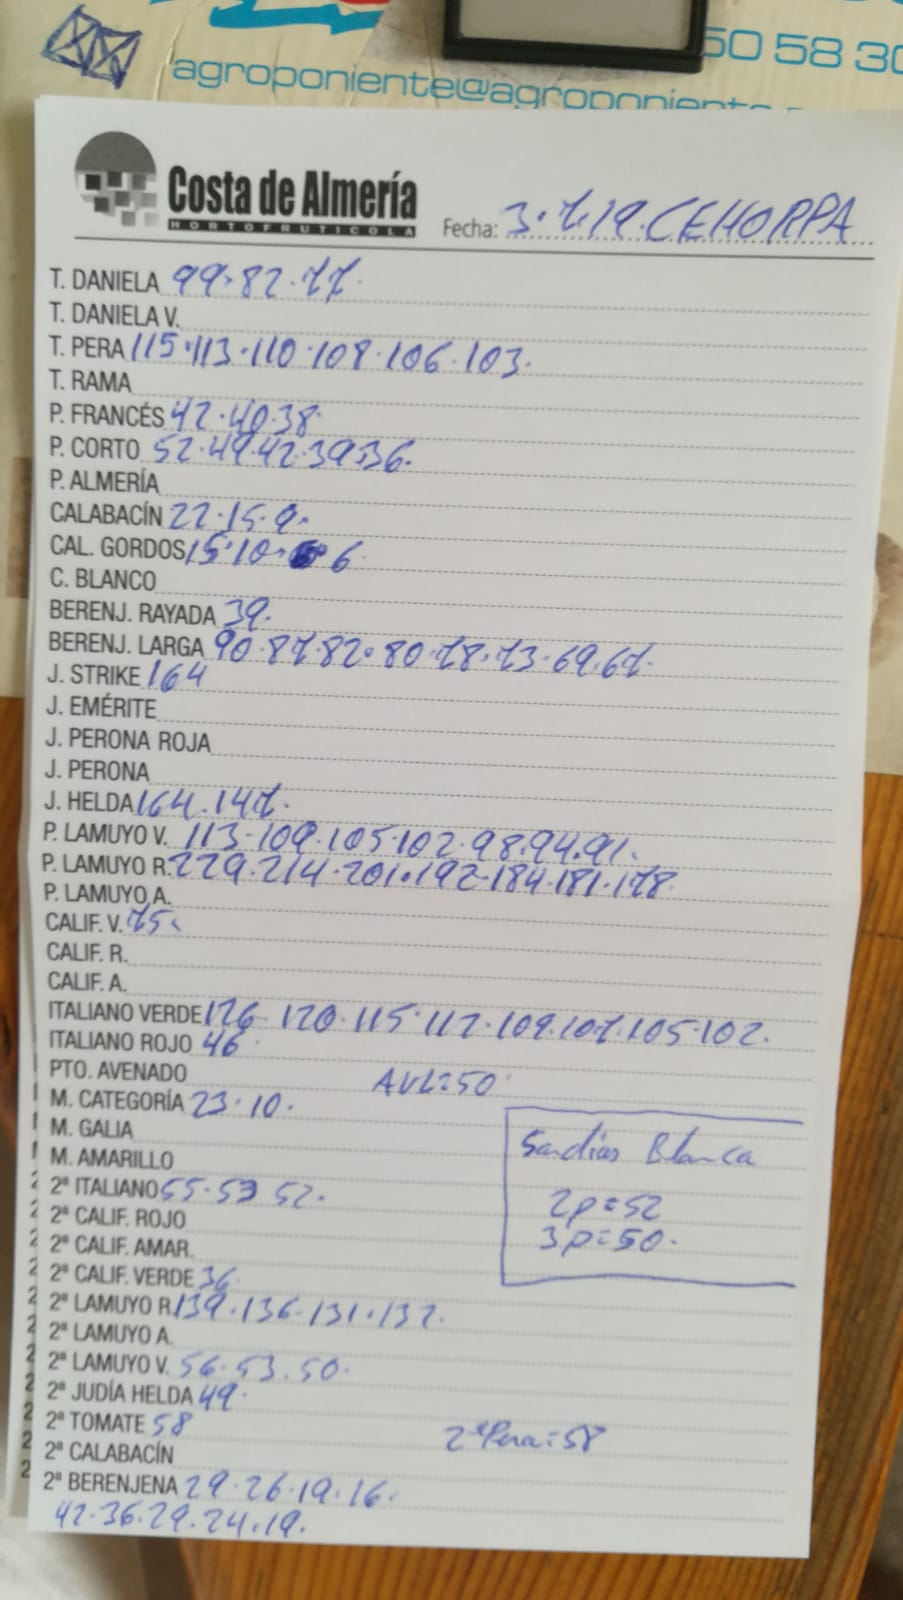 50 58 30
agroponiente@agroponiente.
Costa de Almería
HORTOFRUTICOLA
Fecha: 3.7.19. CEHORPA
T. DANIELA 99.82.77.
T. DANIELA V.
T. PERA 115.113.110.108.106.103.
T. RAMA
P. FRANCÉS 42.40.38.
P. CORTO 52.49.42.39.36.
P. ALMERÍA
CALABACÍN 22.15.9.
CAL. GORDOS 15.10. 6.
C. BLANCO
BERENJ. RAYADA 39.
BERENJ. LARGA 90.87.82.80.78.73.69.67.
J. STRIKE 164
J. EMÉRITE
J. PERONA ROJA
J. PERONA
J. HELDA 164.147.
P. LAMUYO V. 113.109.105.102.98.94.91.
P. LAMUYO R. 229.214.201.192.184.181.178.
P. LAMUYO A.
CALIF. V. 75.
CALIF. R.
CALIF. A.
ITALIANO VERDE 126 120.115.112.109.107.105.102.
ITALIANO ROJO 46.
PTO. AVENADO
M. CATEGORÍA 23.10.
M. GALIA
M. AMARILLO
Sandias Blanca
2ª ITALIANO 55.53 52.
2p=52
2ª CALIF. ROJO
3p=50.
2ª CALIF. AMAR.
2ª CALIF. VERDE 36
2ª LAMUYO R. 139.136.131.132.
2ª LAMUYO A.
2ª LAMUYO V. 56.53.50.
2ª JUDÍA HELDA 49.
2ª TOMATE 58 2ª Pera=58
2ª CALABACÍN
2ª BERENJENA 29.26.19.16.
42.36.29.24.19.